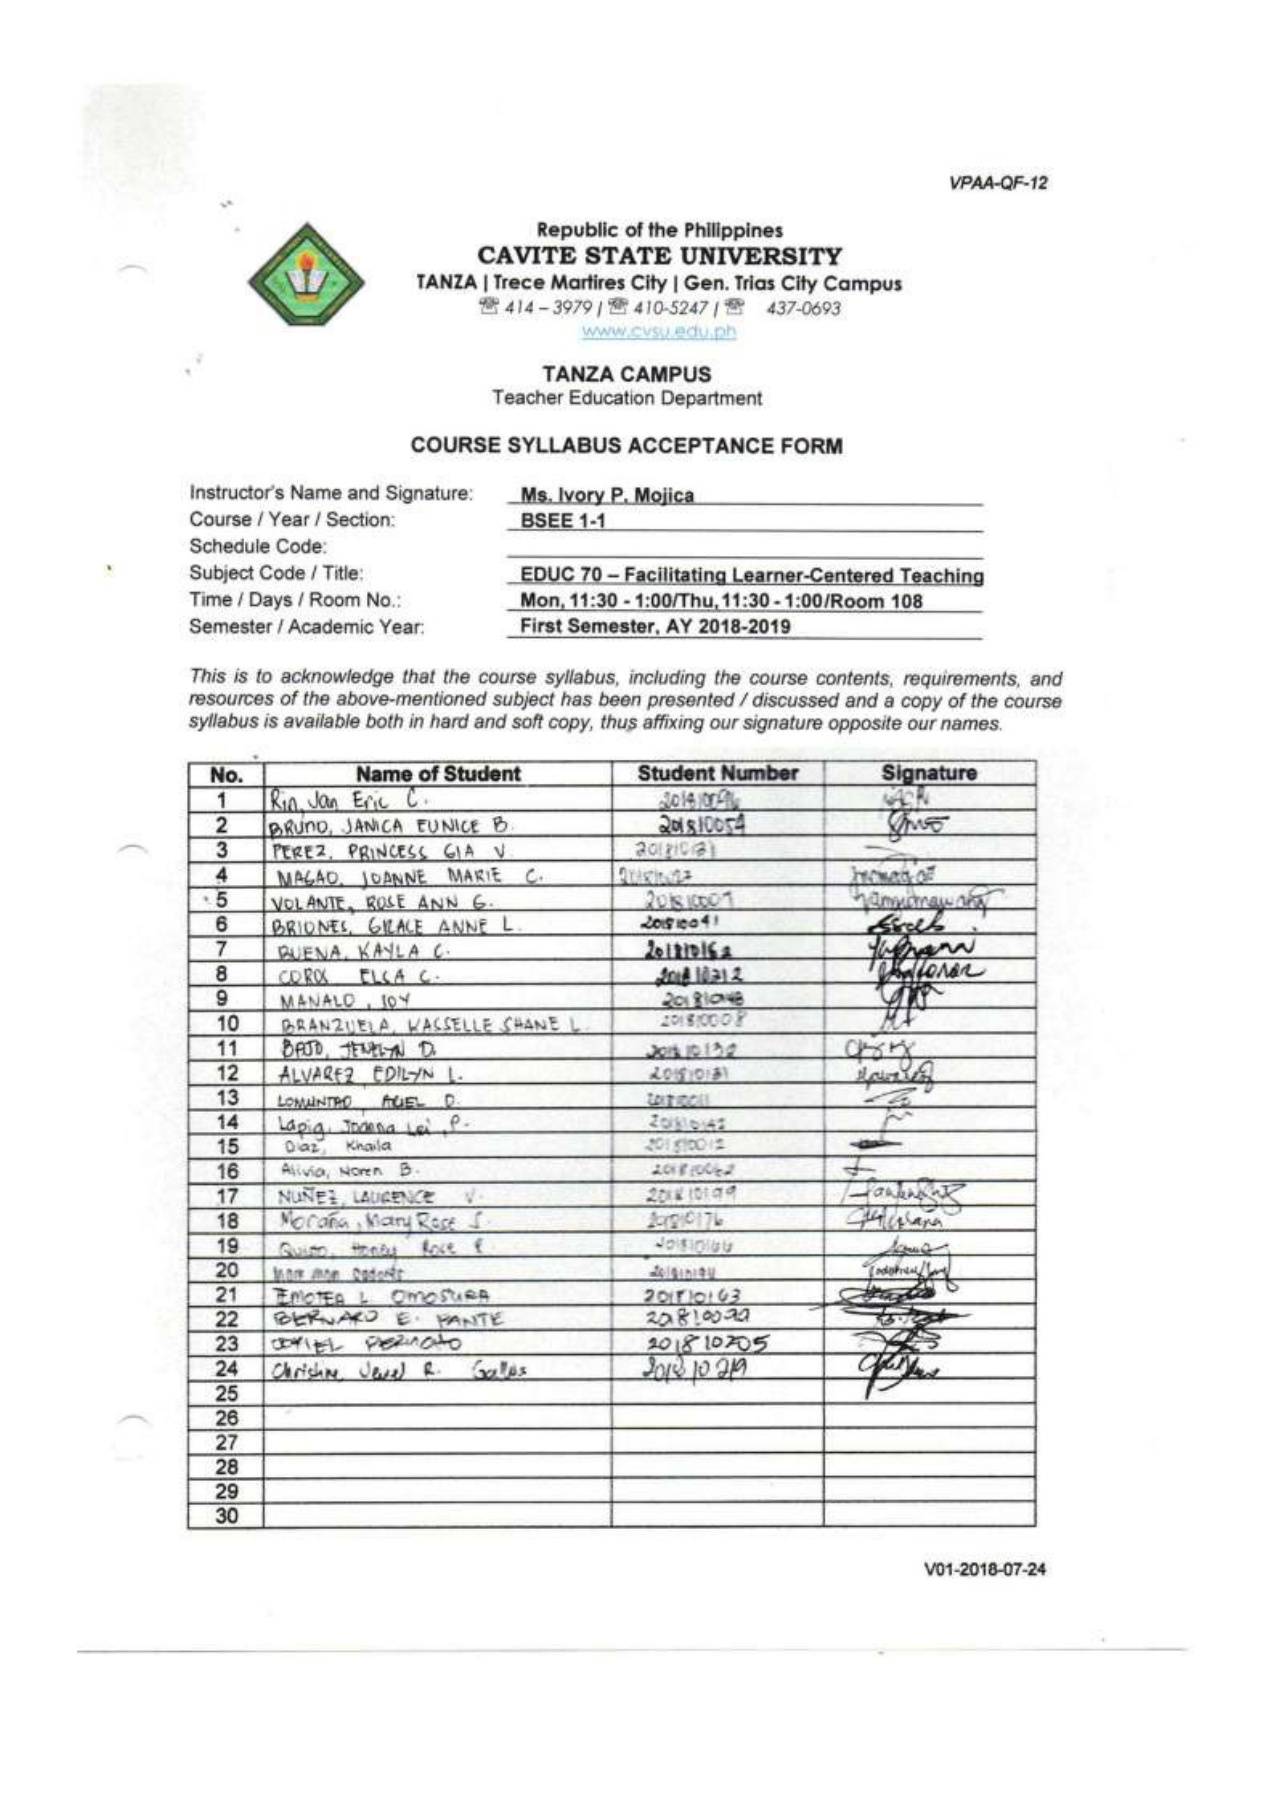 VPAA-QF-12
Republic of the Philippines
CAVITE STATE UNIVERSITY
TANZA | Trece Martires City | Gen. Trias City Campus
☏ 414 – 3979 / ☏ 410-5247 / ☏ 437-0693
www.cvsu.edu.ph
TANZA CAMPUS
Teacher Education Department
COURSE SYLLABUS ACCEPTANCE FORM
Instructor's Name and Signature: Ms. Ivory P. Mojica
Course / Year / Section: BSEE 1-1
Schedule Code:
Subject Code / Title: EDUC 70 – Facilitating Learner-Centered Teaching
Time / Days / Room No.: Mon, 11:30 - 1:00/Thu, 11:30 - 1:00/Room 108
Semester / Academic Year: First Semester, AY 2018-2019
This is to acknowledge that the course syllabus, including the course contents, requirements, and
resources of the above-mentioned subject has been presented / discussed and a copy of the course
syllabus is available both in hard and soft copy, thus affixing our signature opposite our names.
No. Name of Student Student Number Signature
1 Rin, Jan Eric C.
2 BRUNO, JANICA EUNICE B. 201810054
3 PEREZ, PRINCESS GIA V.
4 MAGAO, JOANNE MARIE C.
5 VOLANTE, ROSE ANN G. 201810007
6 BRIONES, GRACE ANNE L. 201810041
7 BUENA, KAYLA C. 201810162
8 ELLA C. 201810212
9 MANALO, JOY
10 BRANZUELA, WASSELLE SHANE L. 201810008
11 JENELYN D. 201810132
12 ALVAREZ EDILYN L. 201810131
13
14 Lapig, P. 201810142
15 Diaz, Khaila 201810012
16 Alivia, Noren B.
17 NUÑEZ, LAURENCE V. 201810199
18 Moraña, Mary Rose S. 201810176
19 Honey Rose 201810166
20
21 OMOSURA 201810163
22 BERNARD E. PANTE
23 201810205
24 Christine Jewel R. Gallos 201810219
25
26
27
28
29
30
V01-2018-07-24